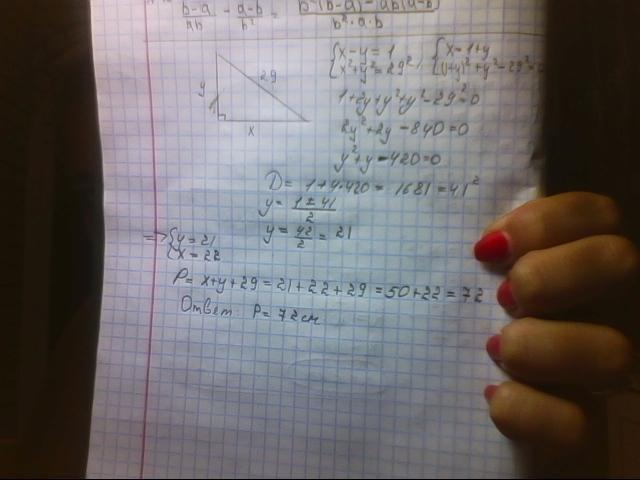 (b-a)/ab - (a-b)/b² = (b²(b-a) - ab(a-b))/(b²·a·b)
{x-y=1 {x=1+y
{x²+y²=29², {(1+y)²+y²-29²=0
29
y
x
1+2y+y²+y²-29²=0
2y²+2y-840=0
y²+y-420=0
D= 1+4·420= 1681=41²
y= (1±41)/2
y= 42/2 = 21
=> {y=21
{x=22
P= x+y+29=21+22+29=50+22=72
Ответ: P=72см